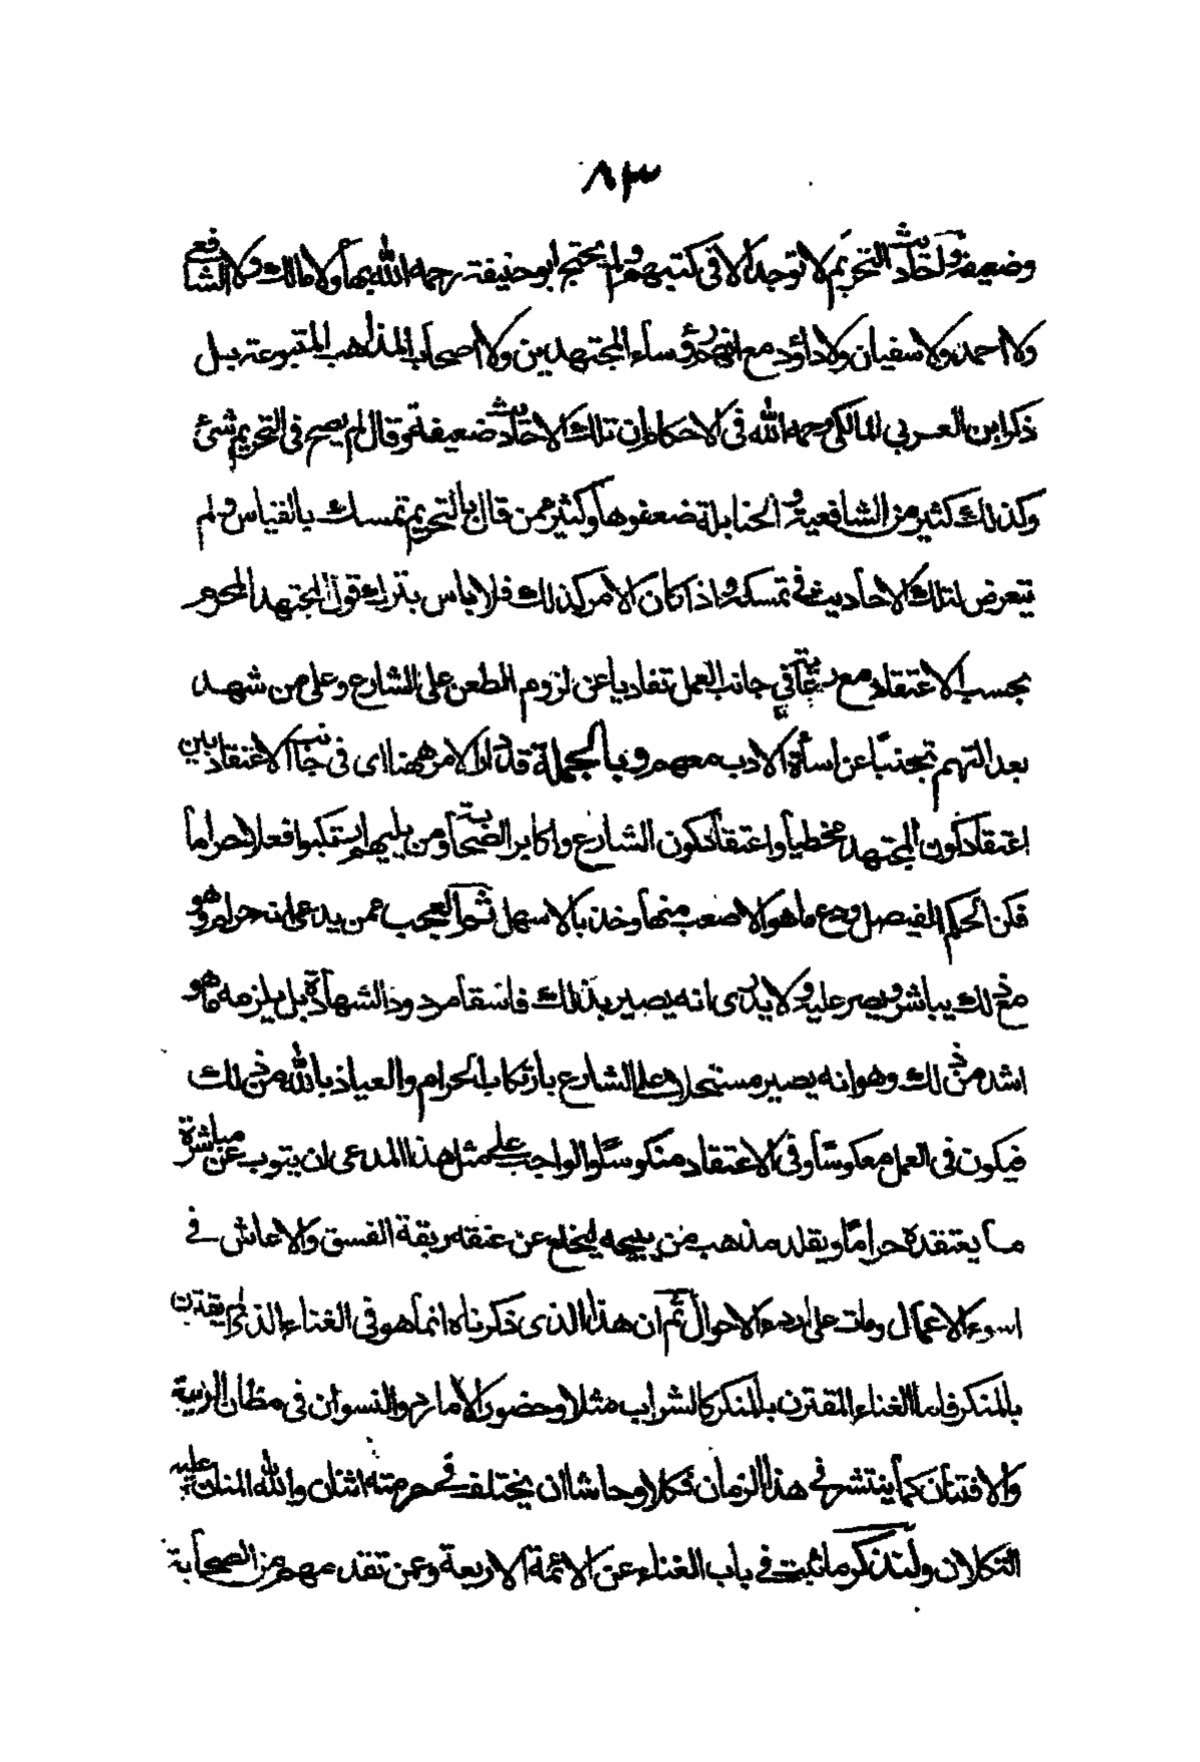 ٨٣
وضعيفة واحاديث التحريم لا توجد الا في كتبهم ولم يحتج ابو حنيفة رحمه الله بها ولا مالك ولا الشافعي
ولا احمد ولا سفيان ولا داؤد مع انهم رؤساء المجتهدين ولا اصحاب المذاهب المتبوعة بل
ذكر ابن العربي المالكي رحمه الله في الاحكام ان تلك الاحاديث ضعيفة وقال لم يصح في التحريم شئ
وكذلك كثير من الشافعية والحنابلة ضعفوها وكثير ممن قال بالتحريم تمسك بالقياس ولم
يتعرض لتلك الاحاديث في تمسكه واذا كان الامر كذلك فلا باس بترك قول المجتهد المحرم
بحسب الاعتقاد مع رعايته في جانب العمل تفاديا عن لزوم الطعن على الشارع وعلى من شهد
بعدالتهم تجنبا عن اسأة الادب معهم وبالجملة قد دار الامر ههنا اى في جانب الاعتقاد بين
اعتقاد كون المجتهد مخطيا واعتقاد كون الشارع واكابر الصحابة ومن يليهم ارتكبوا فعلا حراما
فكن الحكم الفيصل ودع ما هو الاصعب منها وخذ بالاسهل ثم العجب عمن يدعى انه حرام وهو
مع ذلك يباشره ويصر عليه ولا يدرى انه يصير بذلك فاسقا مردود الشهادة بل يلزمه ما هو
اشد من ذلك وهو انه يصير مستحلا على الشارع بارتكاب الحرام والعياذ بالله من ذلك
فيكون في العمل معكوسا وفي الاعتقاد منكوسا والواجب على مثل هذا المدعى ان يتوب عن مباشرة
ما يعتقده حراما ويقلد مذهب من يبيحه ليخلع عن عنقه ربقة الفسق والا عاش في
اسوء الاعمال ومات على اردء الاحوال ثم ان هذا الذى ذكرناه انما هو في الغناء الذى لم يقترن
بالمنكر فاما الغناء المقترن بالمنكر كالشراب مثلا وحضور الامارد والنسوان في مظان الريبة
والافتتان كما ينتشر في هذا الزمان فكلا وحاشا ان يختلف في حرمته اثنان والله المنان عليه
التكلان ولنذكر ما ثبت في باب الغناء عن الائمة الاربعة وعمن تقدمهم من الصحابة